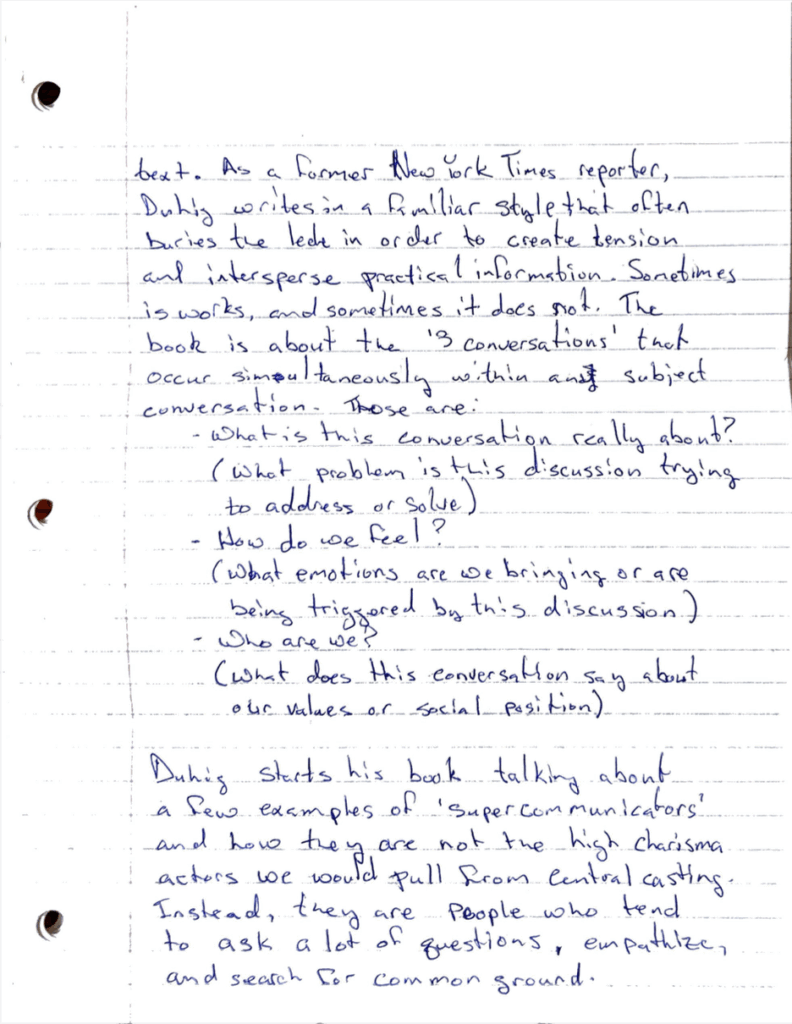 text. As a former New York Times reporter,
Duhig writes in a familiar style that often
buries the lede in order to create tension
and intersperse practical information. Sometimes
is works, and sometimes it does not. The
book is about the '3 conversations' that
occur simultaneously within any subject
conversation. Those are:
- What is this conversation really about?
(What problem is this discussion trying
to address or solve)
- How do we feel?
(What emotions are we bringing or are
being triggered by this discussion)
- Who are we?
(What does this conversation say about
our values or social position)
Duhig starts his book talking about
a few examples of 'supercommunicators'
and how they are not the high charisma
actors we would pull from central casting.
Instead, they are people who tend
to ask a lot of questions, empathize,
and search for common ground.